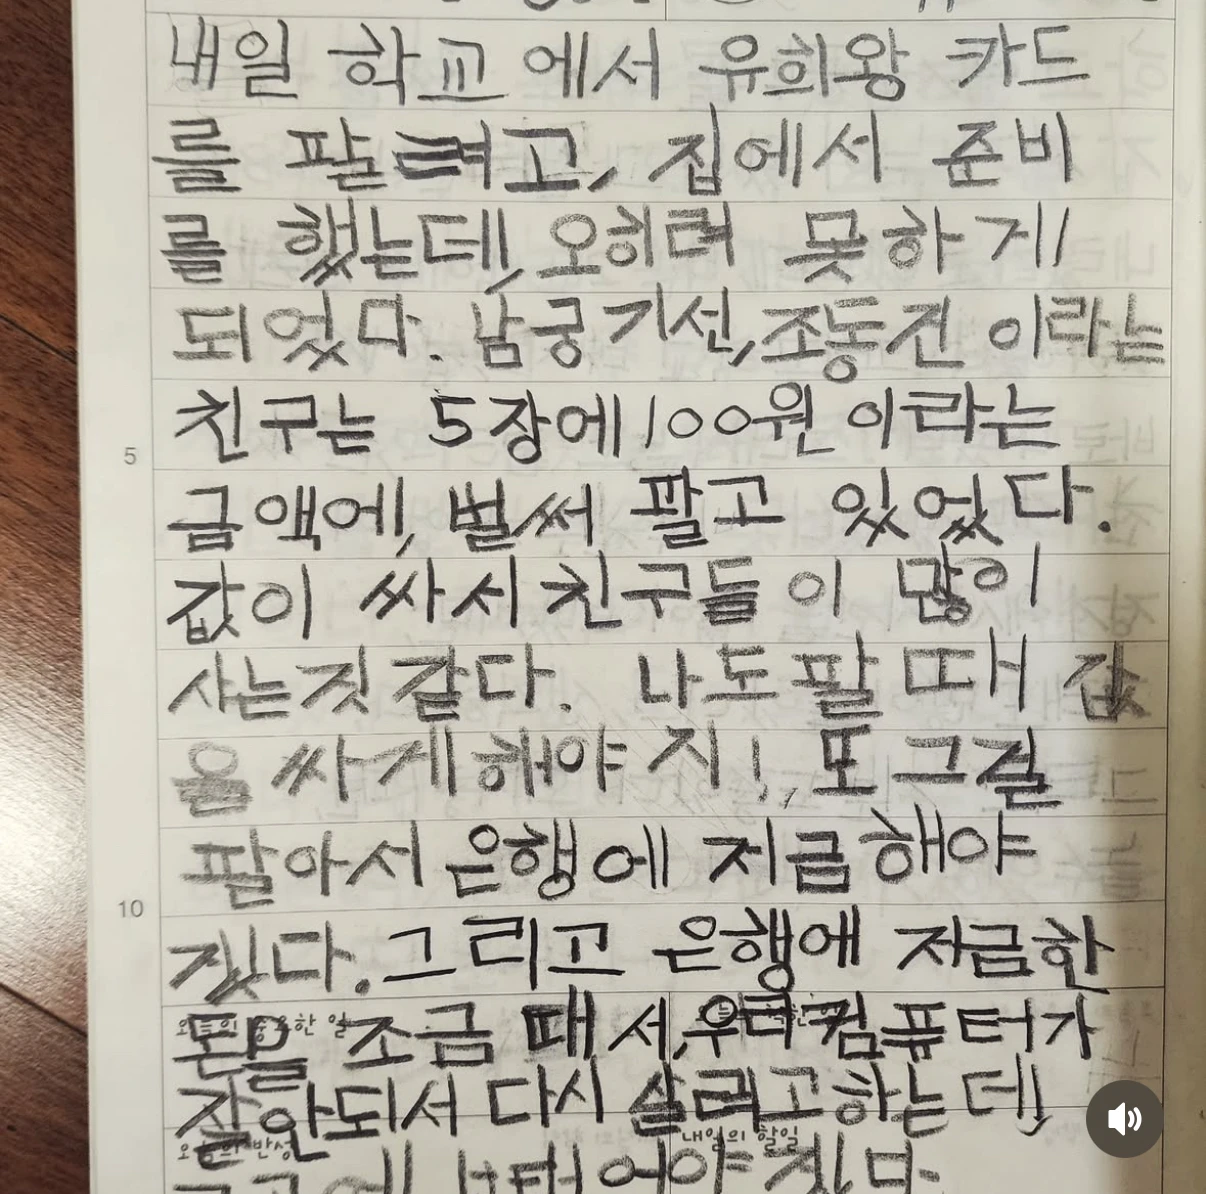 내일 학교에서 유희왕 카드
를 팔려고, 집에서 준비
를 했는데, 오히려 못하게
되었다. 남궁기선, 조동건 이라는
친구는 5장에 100원 이라는
금액에, 벌써 팔고 있었다.
값이 싸서 친구들이 많이
사는것 같다. 나도 팔때 값
을 싸게 해야지!, 또 그걸
팔아서 은행에 저금해야
겠다. 그리고 은행에 저금한
돈을 조금 때서, 우리 컴퓨터가
잘안되서 다시 살려고하는데,
내일의 할일